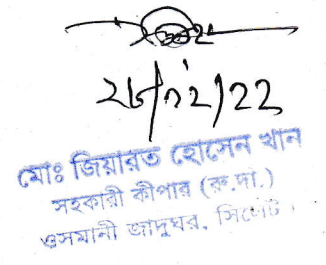 ২৮/০২/22
মোঃ জিয়ারত হোসেন খান
সহকারী কীপার (রু.দা.)
ওসমানী জাদুঘর, সিলেট।